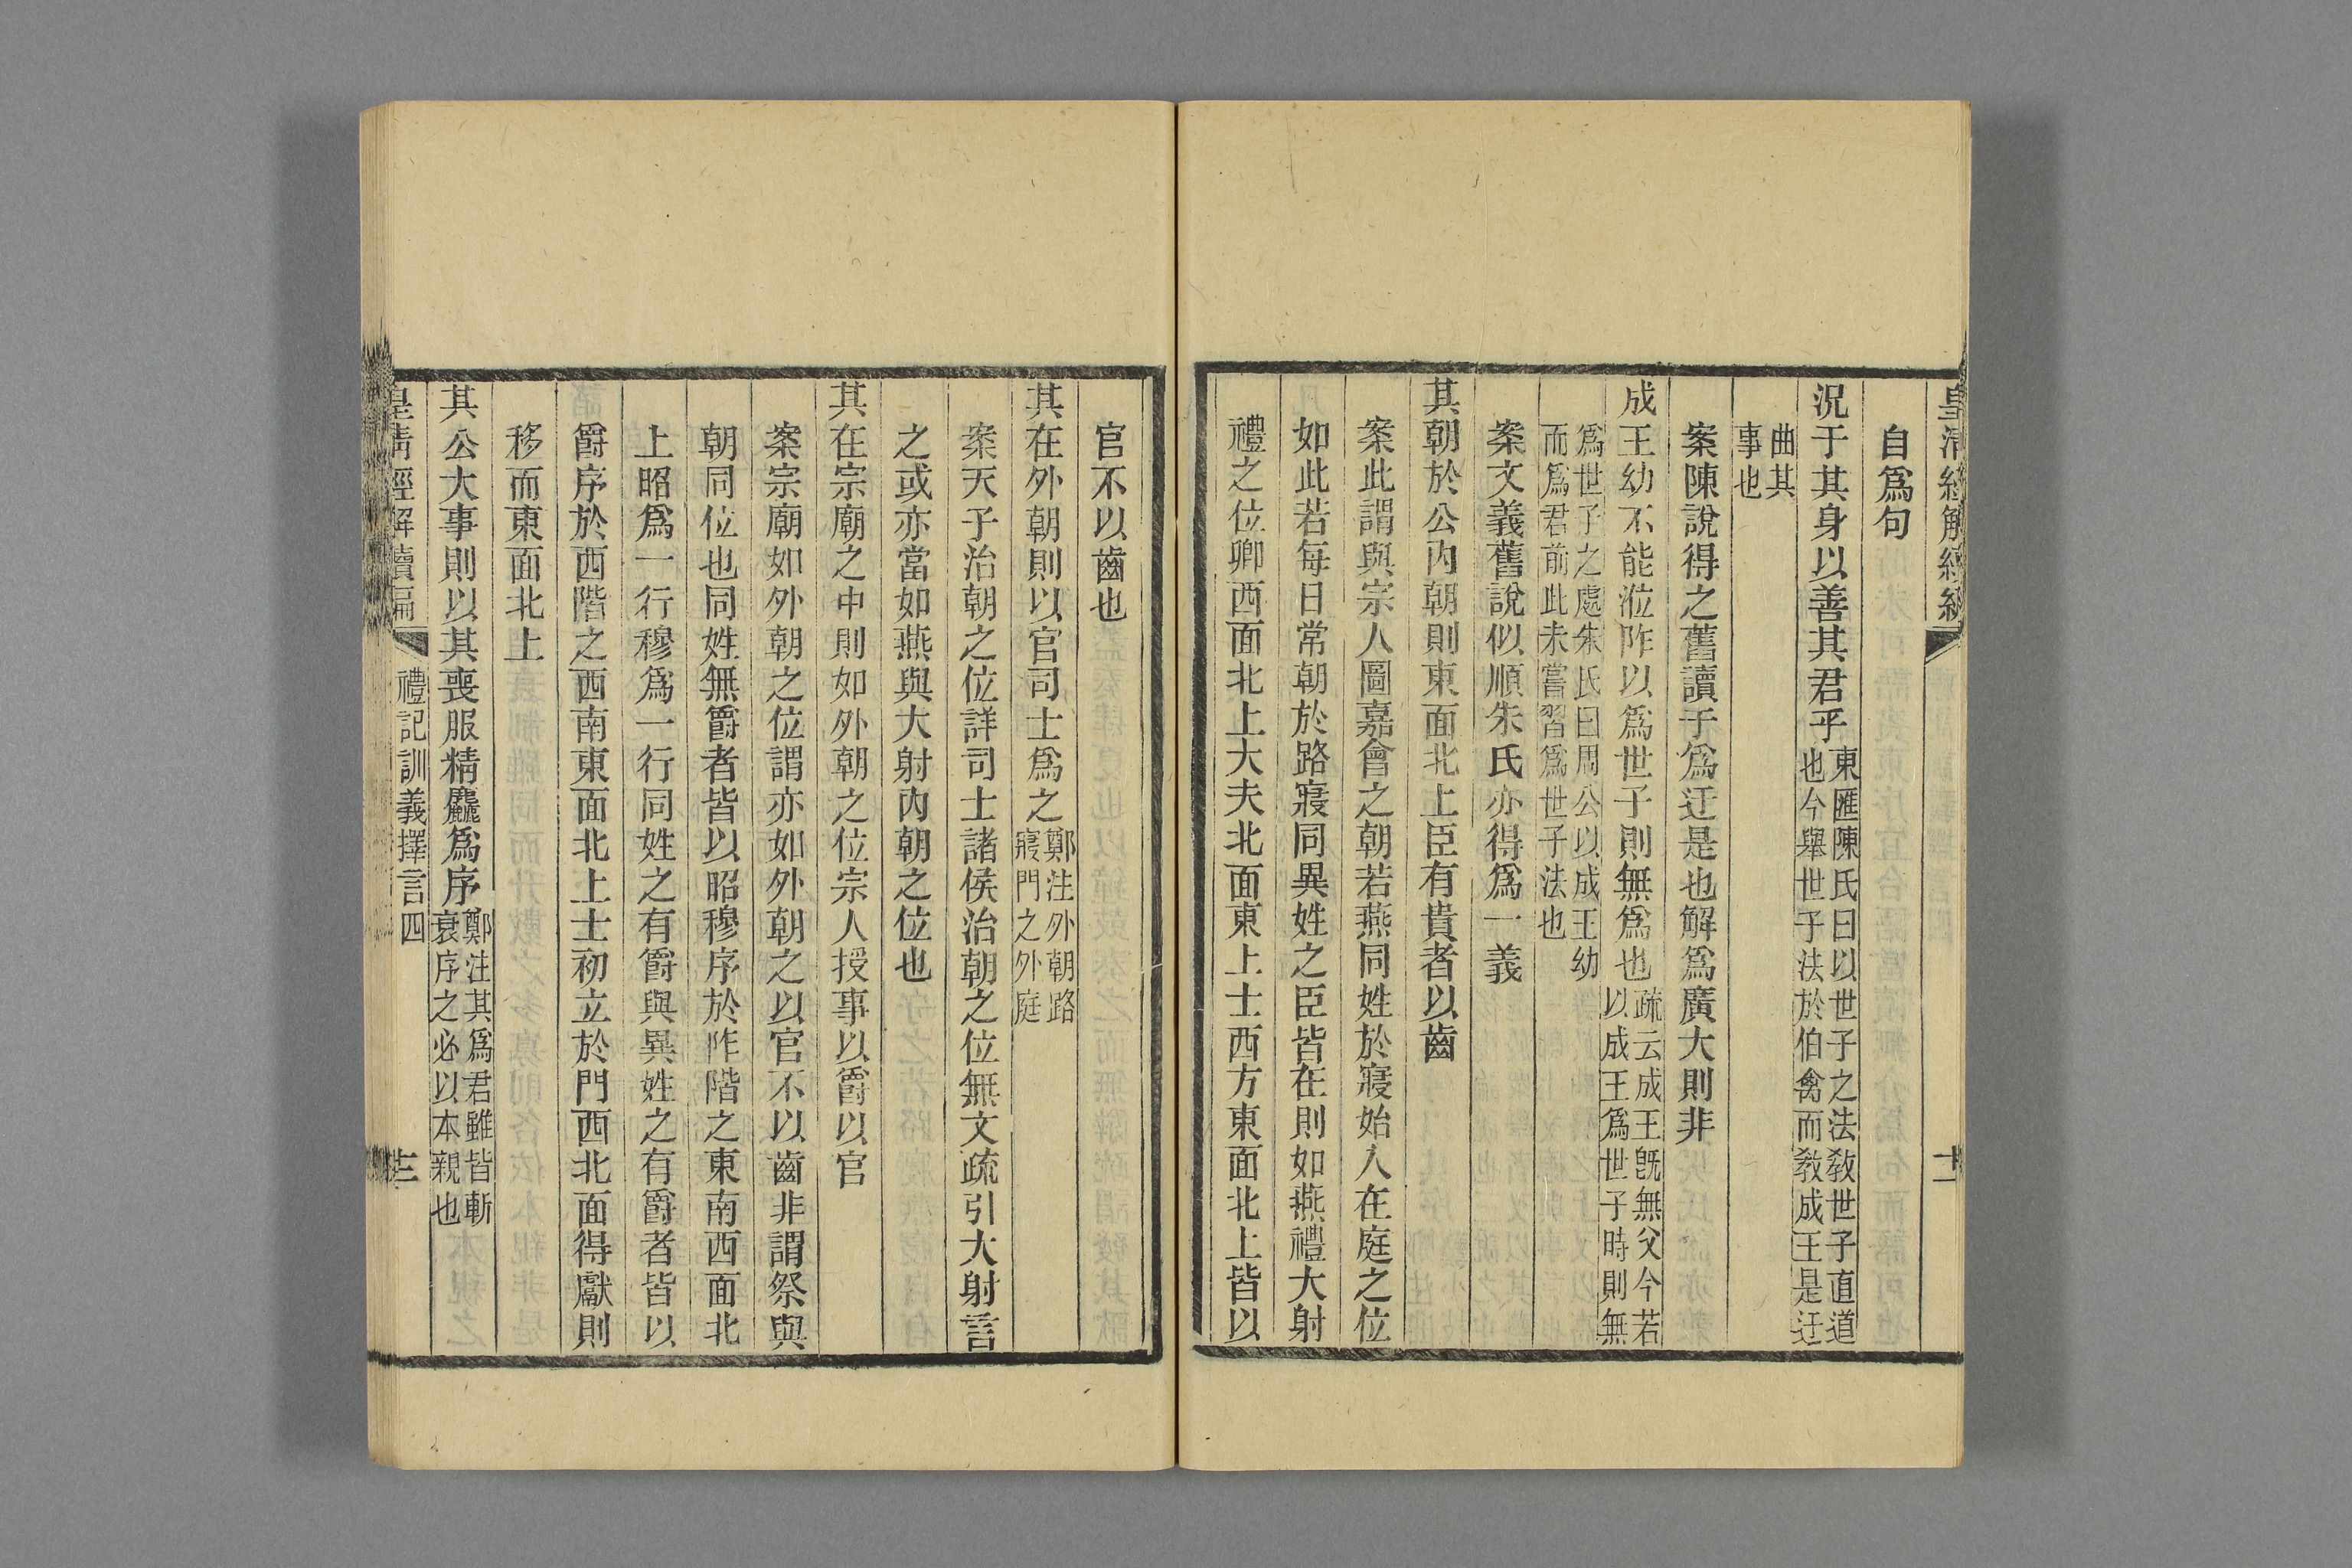 自爲句
況于其身以善其君乎東匯陳氏曰以世子之法敎世子直道
也今舉世子法於伯禽而敎成王是迂
曲其
事也
案陳說得之舊讀于爲迂是也解爲廣大則非
成王幼不能涖阼以爲世子則無爲也疏云成王旣無父今若
以成王爲世子時則無
爲世子之處朱氏曰周公以成王幼
而爲君前此未嘗習爲世子法也
案文義舊說似順朱氏亦得爲一義
其朝於公內朝則東面北上臣有貴者以齒
案此謂與宗人圖嘉會之朝若燕同姓於寢始入在庭之位
如此若每日常朝於路寢同異姓之臣皆在則如燕禮大射
禮之位卿西面北上大夫北面東上士西方東面北上皆以
官不以齒也
其在外朝則以官司士爲之鄭注外朝路
寢門之外庭
案天子治朝之位詳司士諸侯治朝之位無文疏引大射言
之或亦當如燕與大射內朝之位也
其在宗廟之中則如外朝之位宗人授事以爵以官
案宗廟如外朝之位謂亦如外朝之以官不以齒非謂祭與
朝同位也同姓無爵者皆以昭穆序於阼階之東南西面北
上昭爲一行穆爲一行同姓之有爵與異姓之有爵者皆以
爵序於西階之西南東面北上士初立於門西北面得獻則
移而東面北上
其公大事則以其喪服精麤爲序鄭注其爲君雖皆斬
衰序之必以本親也
皇淸經解續編
禮記訓義擇言四